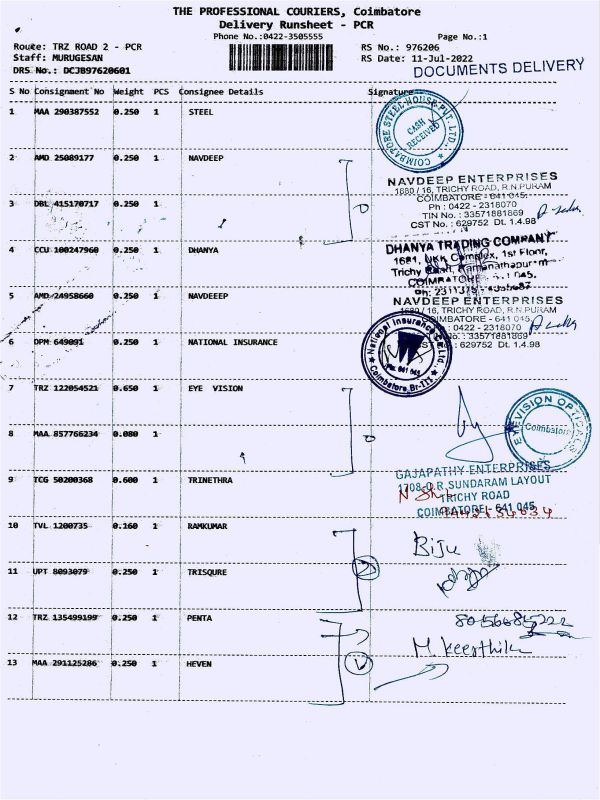 THE PROFESSIONAL COURIERS, Coimbatore
Delivery Runsheet - PCR
Phone No.:0422-3505555 Page No.:1
Route: TRZ ROAD 2 - PCR RS No.: 976206
Staff: MURUGESAN RS Date: 11-Jul-2022
DRS No.: DCJB97620601 DOCUMENTS DELIVERY
S No Consignment No Weight PCS Consignee Details Signature
1 MAA 290387552 0.250 1 STEEL
COIMBATORE STEEL HOUSE PVT. LTD.,
CASH RECEIVED
2 AMD 25089177 0.250 1 NAVDEEP
NAVDEEP ENTERPRISES
1680 / 16, TRICHY ROAD, R.N.PURAM
COIMBATORE - 641 045.
3 DBL 415170717 0.250 1
Ph : 0422 - 2318070
TIN No. : 33571881869
CST No. : 629752 Dt. 1.4.98
4 CCU 100247960 0.250 1 DHANYA
DHANYA TRADING COMPANY
1681, UKK Complex, 1st Floor,
Trichy Road, Ramanathapuram
COIMBATORE - 641 045.
5 AMD 24958660 0.250 1 NAVDEEEP
NAVDEEP ENTERPRISES
COIMBATORE - 641 045.
: 0422 - 2318070
: 33571881869
CST No. : 629752 Dt. 1.4.98
6 DPM 649091 0.250 1 NATIONAL INSURANCE
National Insurance Co. Ltd.
Coimbatore, Br-III
641 045
7 TRZ 122054521 0.650 1 EYE VISION
EYEVISION OPTICALS
Coimbatore
8 MAA 857766234 0.080 1
9 TCG 50200368 0.600 1 TRINETHRA
GAJAPATHY ENTERPRISES
1708-O.R. SUNDARAM LAYOUT
TRICHY ROAD
COIMBATORE - 641 045.
10 TVL 1200735 0.160 1 RAMKUMAR
Biju
11 UPT 8093079 0.250 1 TRISQURE
12 TRZ 135499199 0.250 1 PENTA
8056685222
M. Keerthika
13 MAA 291125286 0.250 1 HEVEN